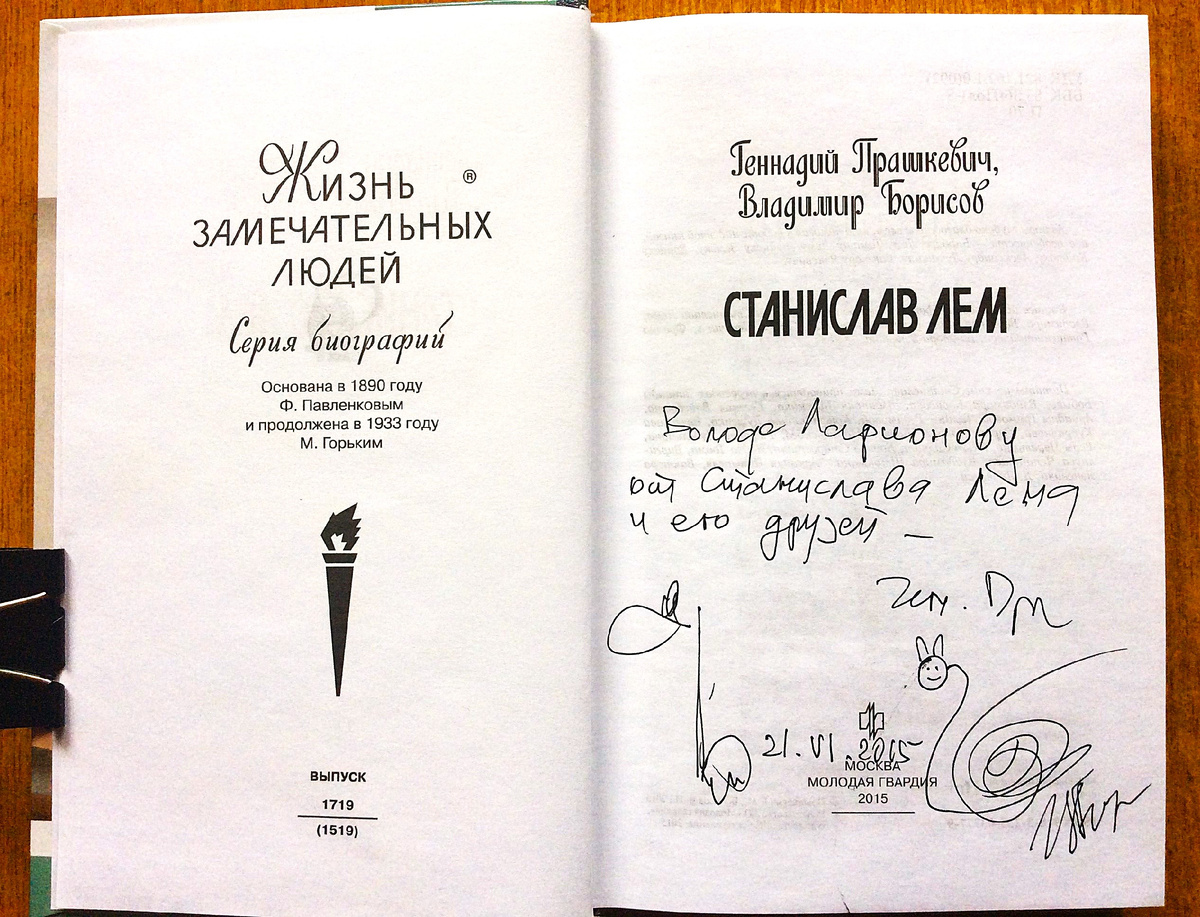 Жизнь ®
ЗАМЕЧАТЕЛЬНЫХ
ЛЮДЕЙ
Серия биографий
Основана в 1890 году
Ф. Павленковым
и продолжена в 1933 году
М. Горьким
ВЫПУСК
1719
(1519)
Геннадий Прашкевич,
Владимир Борисов
СТАНИСЛАВ ЛЕМ
Володе Ларионову
от Станислава Лема
и его друзей –
Ген. Пр
21.VI.2015
МОСКВА
МОЛОДАЯ ГВАРДИЯ
2015